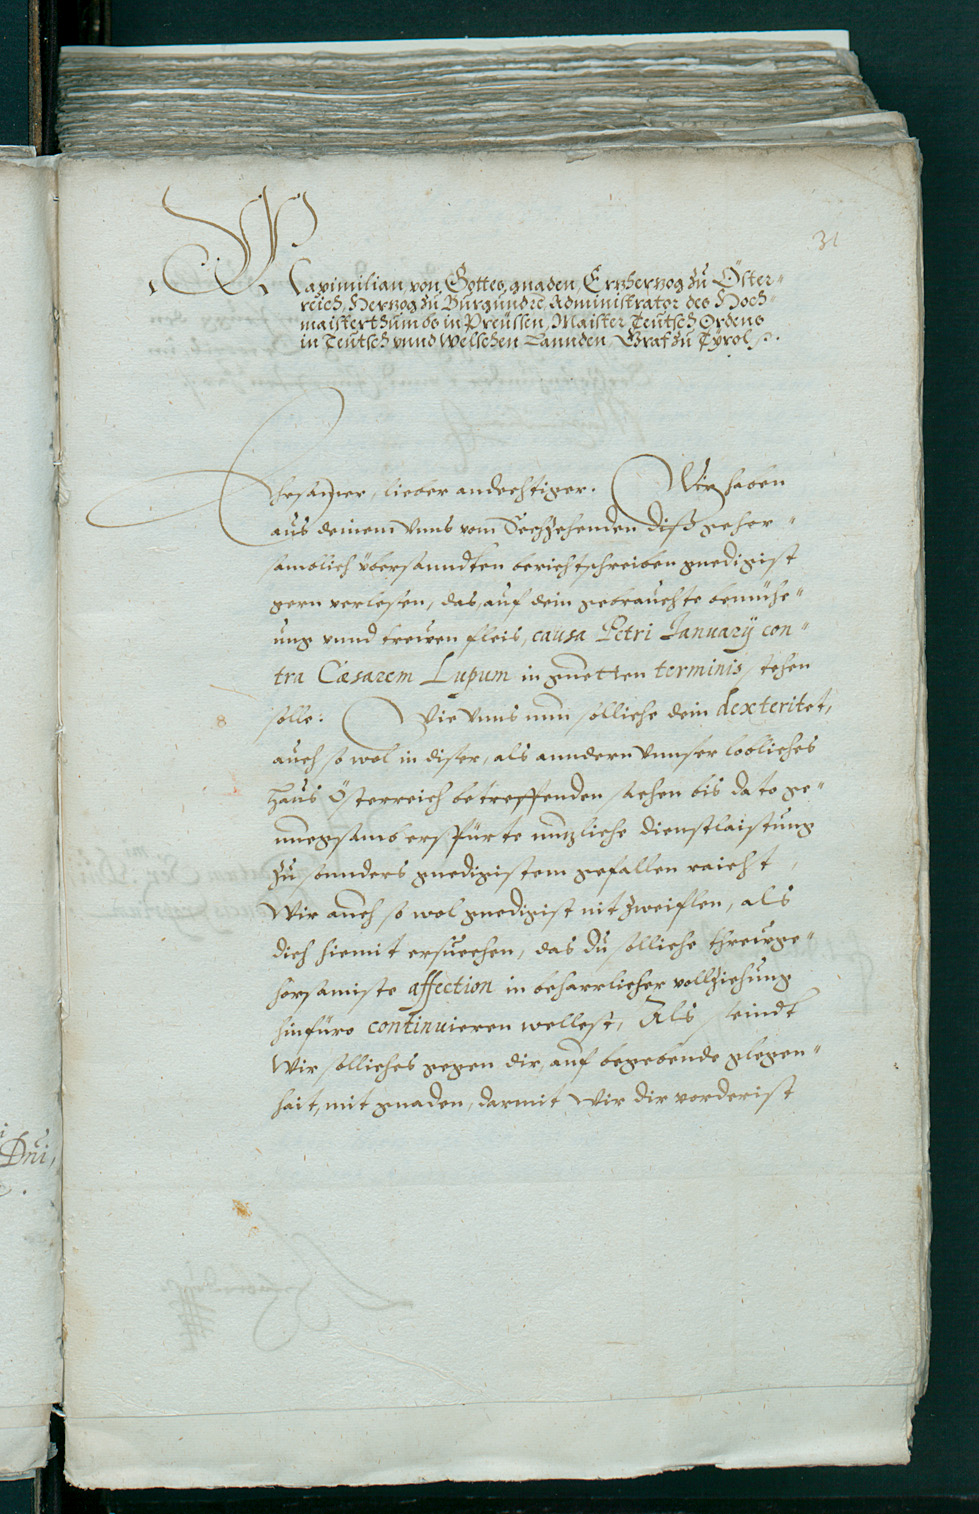 31
Maximilian von Gottes gnaden, Ertzhertzog zu Öster-
reich, Hertzog zu Burgundj, Administrator des Hoch-
maisterthumbs in Preüssen, Maister Teutsch Ordens
in Teutsch vnnd Welschen Lannden, Graf zu Tÿrol
Ehrsamer, lieber andechtiger. Wir haben
aus deinem Vnns vom Sechzehenden diß gehor-
samblich übersanndten berichtschreiben gnedigist
gern verlesen, das, auf dein gebrauchte bemühe-
ung vnnd trewen fleis, causa Petri Januarij con-
tra Cæsarem Lupum in guetten terminis stehen
solle. Wie Vnns nun solliche dein dexteritet,
auch so wol in diser, als anndern Vnnser lobliches
Haus Österreich betreffenden sachen bis dato ge-
nuegsamb erspürte nuzliche dienstlaistung
zu sonnders gnedigistem gefallen raicht,
Wir auch so wol gnedigist nit zweiflen, als
dich hiemit ersuechen, das du solliche threwge-
horsamiste affection in beharrlicher vollziehung
hinfüro continuieren wellest, Als seindt
Wir solliches gegen dir, auf begebende glegen-
hait, mit gnaden, darmit Wir dir vorderist
Dni,